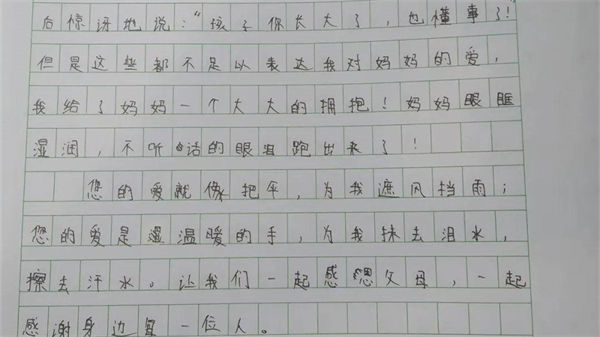 后惊讶地说:“孩子你长大了,也懂事了!
但是这些都不足以表达我对妈妈的爱,
我给了妈妈一个大大的拥抱!妈妈眼眶
湿润,不听话的眼泪跑出来了!
您的爱就像把伞,为我遮风挡雨;
您的爱是温暖的手,为我抹去泪水,
擦去汗水。让我们一起感恩父母,一起
感谢身边每一位人。